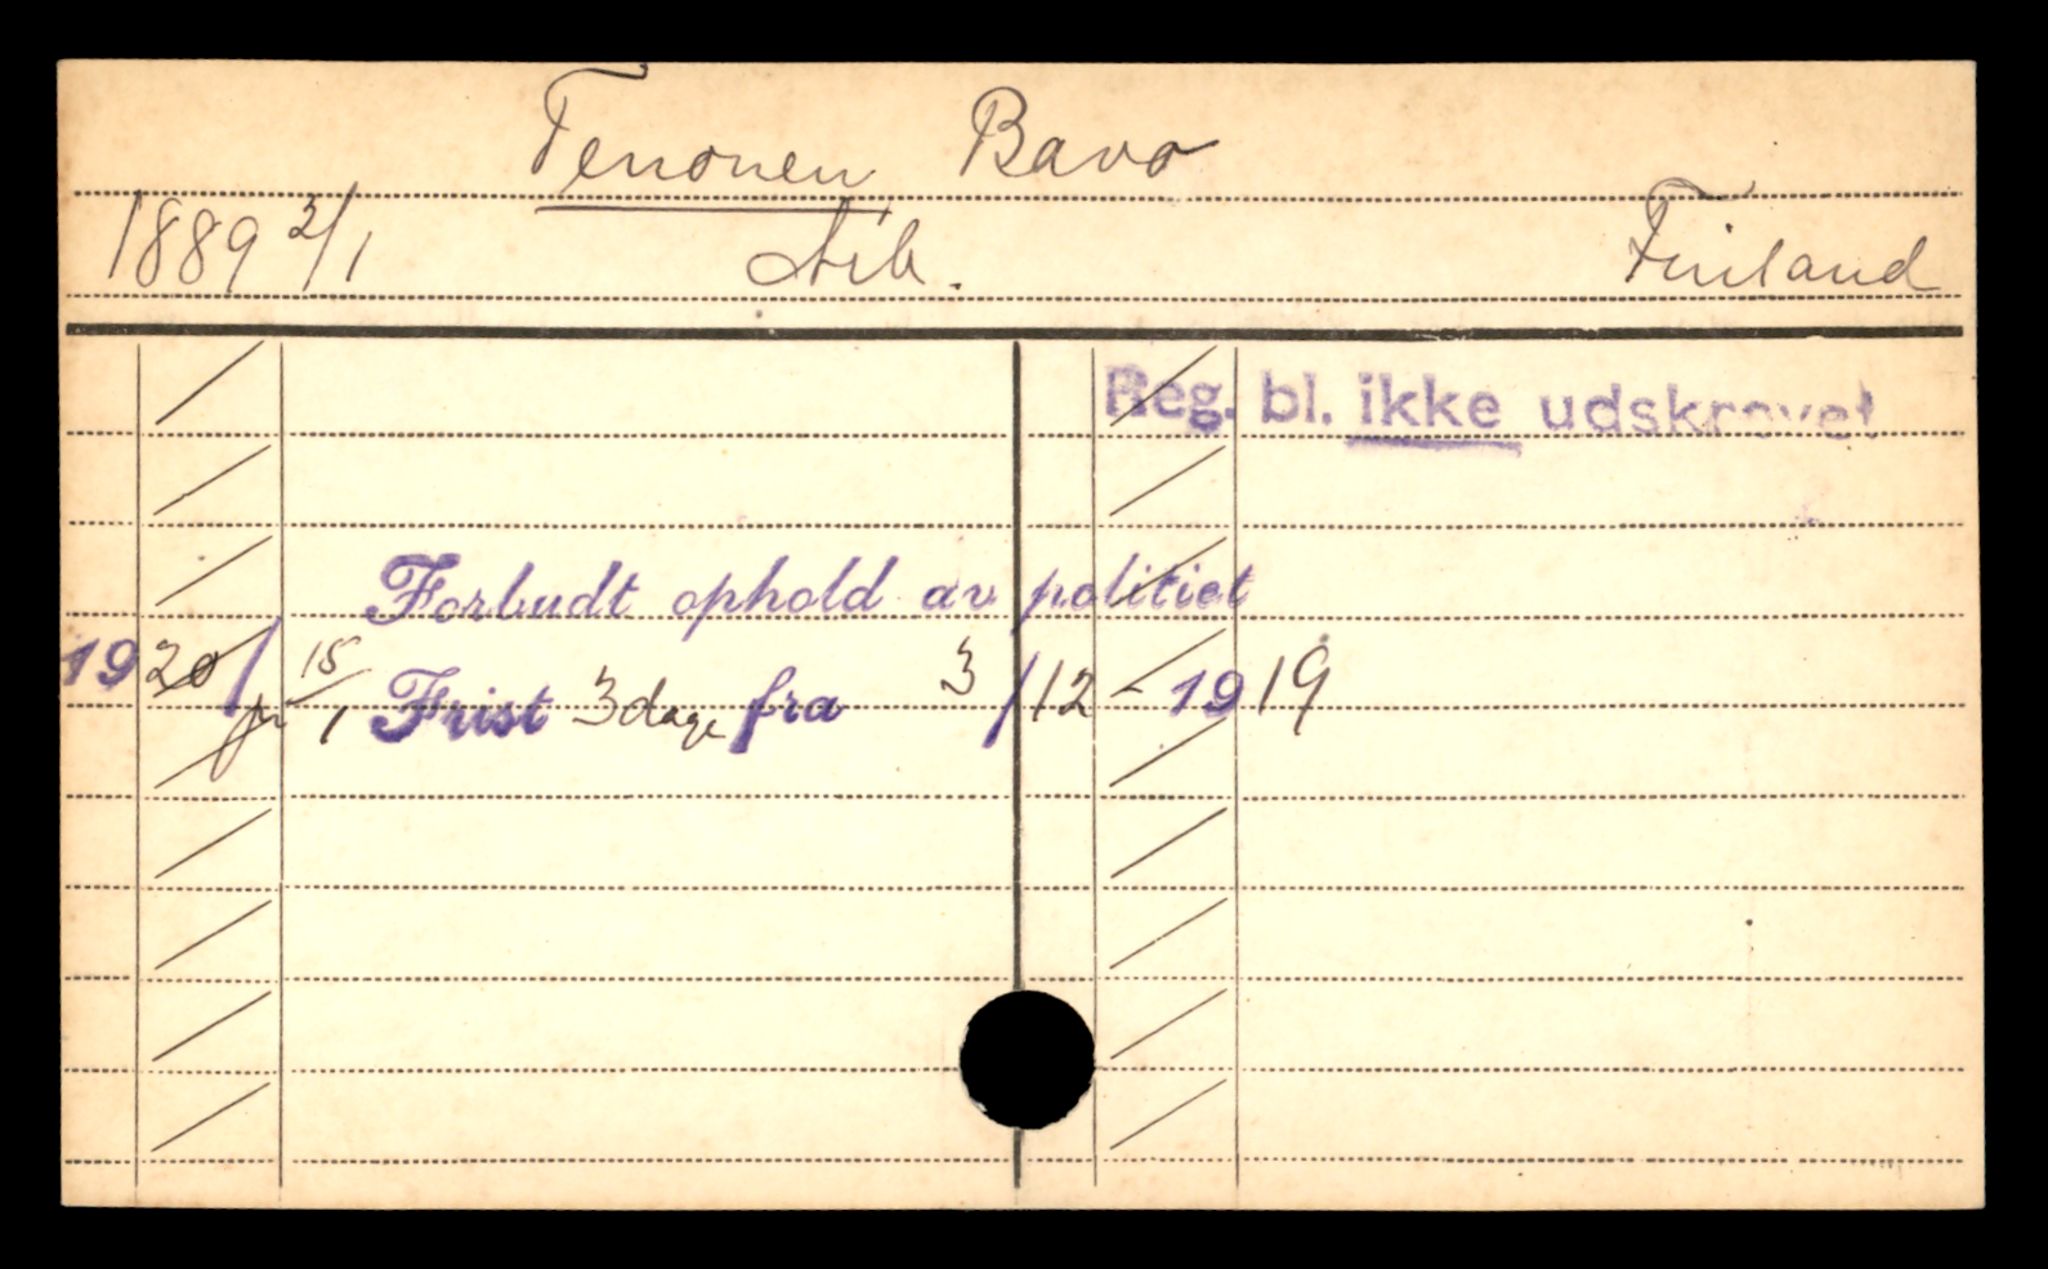 Tenonen Bavo
1889 2/1 Arb. Finland
Reg. bl. ikke udskrevet
Forbudt ophold av politiet
1920 / 15/1 Frist 3 dage fra 3/12-1919